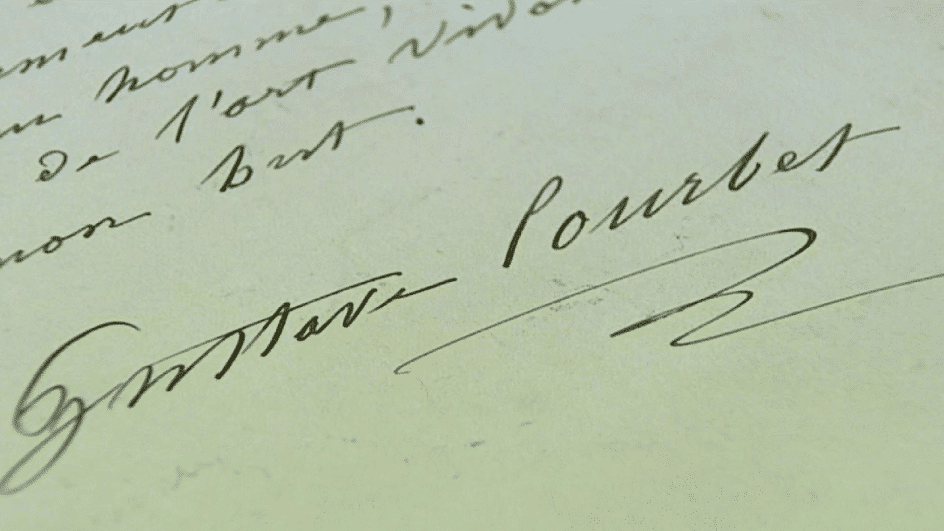 un homme,
de l'art vivant
mon but.
Gustave Courbet